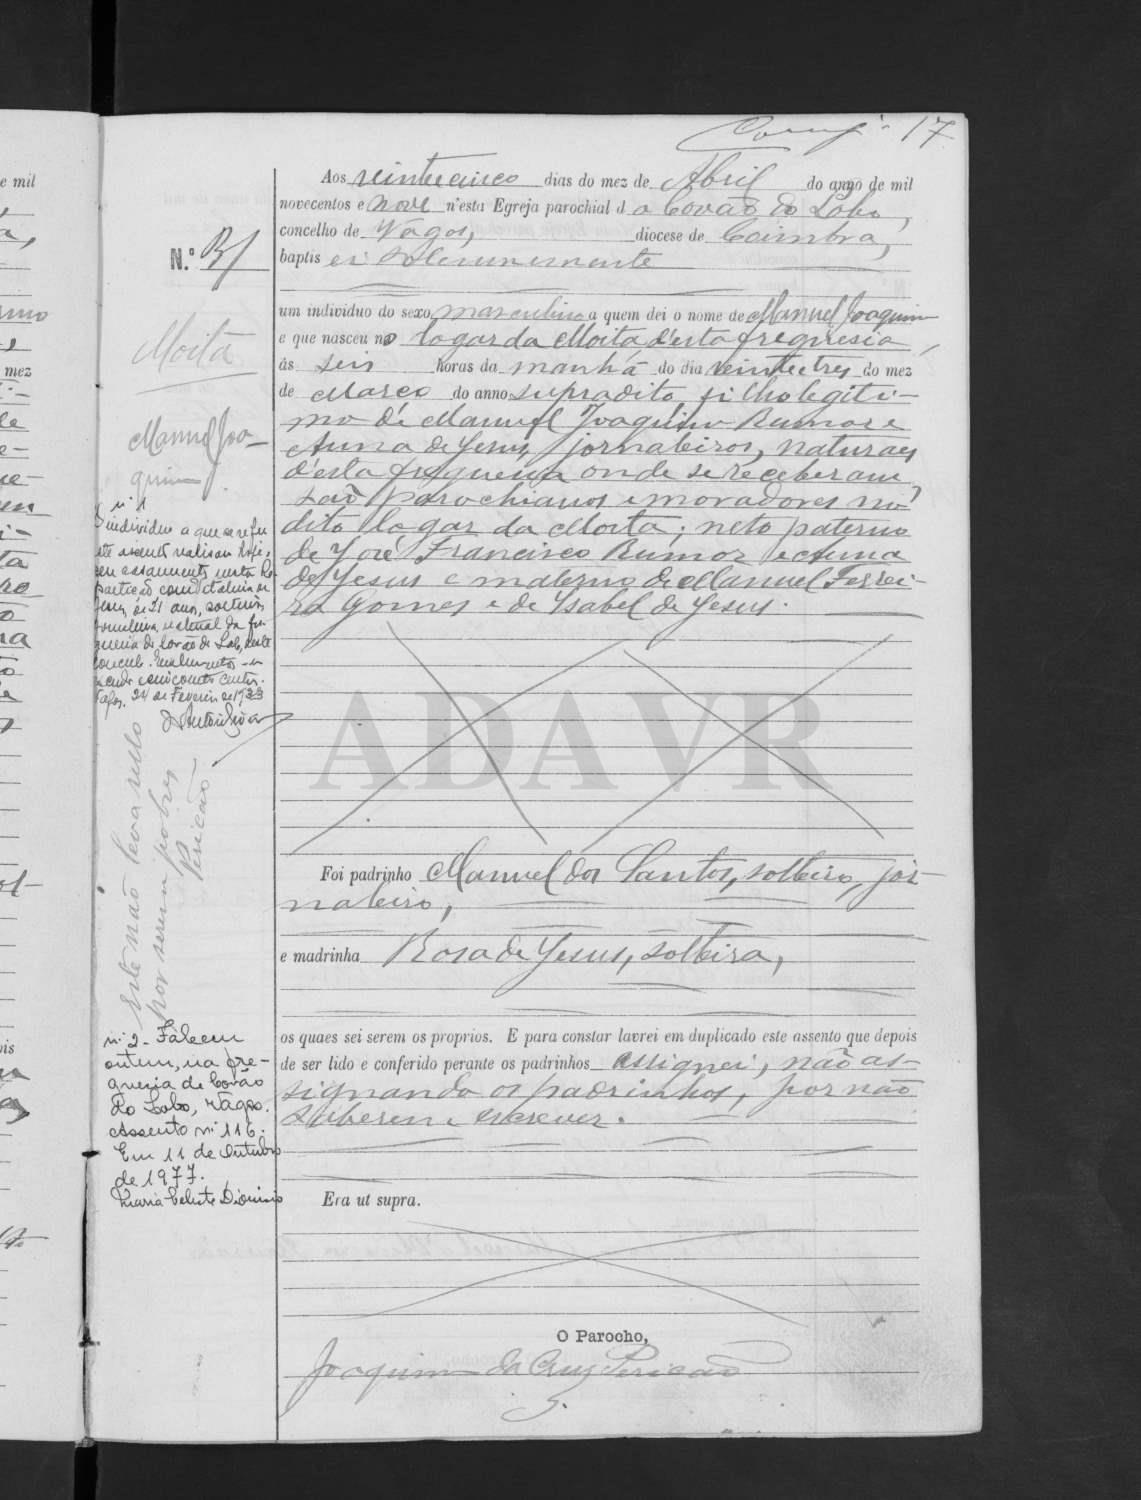 17
Aos vinte cinco dias do mez de Abril do anno de mil
novecentos e nove n'esta Egreja parochial d o Covão do Lobo,
concelho de Vagos, diocese de Coimbra,
baptis ei solemnemente
um individuo do sexo masculino a quem dei o nome de Manuel Joaquim
e que nasceu no logar da Moita, d'esta freguesia,
ás seis horas da manhã do dia vinte e tres do mez
de Março do anno supradito, filho legiti-
mo de Manuel Joaquim Rumor e
Anna de Jesus, jornaleiros, naturaes
d'esta freguesia onde se receberam,
são parochianos e moradores no
dito logar da Moita; neto paterno
de José Francisco Rumor e Anna
de Jesus e materno de Manuel Ferrei-
ra Gomes e de Ysabel de Jesus.
ADAVR
Foi padrinho Manuel dos Santos, solteiro, jor-
naleiro,
e madrinha Rosa de Jesus, solteira,
os quaes sei serem os proprios. E para constar lavrei em duplicado este assento que depois
de ser lido e conferido perante os padrinhos assignei, não as-
signando os padrinhos, por não
saberem escrever.
Era ut supra.
O Parocho,
Joaquim da Cruz Pericão
N.º
Moita
Manuel Joa-
quim
nº 1
O individuo a que se refere
este assento realisou hoje,
seu casamento nesta Re-
partição com
Jesus, de 21 anos, solteira,
jornaleira, natural da fre-
guesia de Covão do Lobo, deste
concelho.
Vagos, 24 de Fevereiro de 1933
Este não leva sello
por serem pobres
Pericão
nº 2 - Faleceu
ontem, na fre-
guesia de Covão
do Lobo, Vagos.
Assento nº 116.
Em 11 de Outubro
de 1977.
Maria Celeste Dionisio